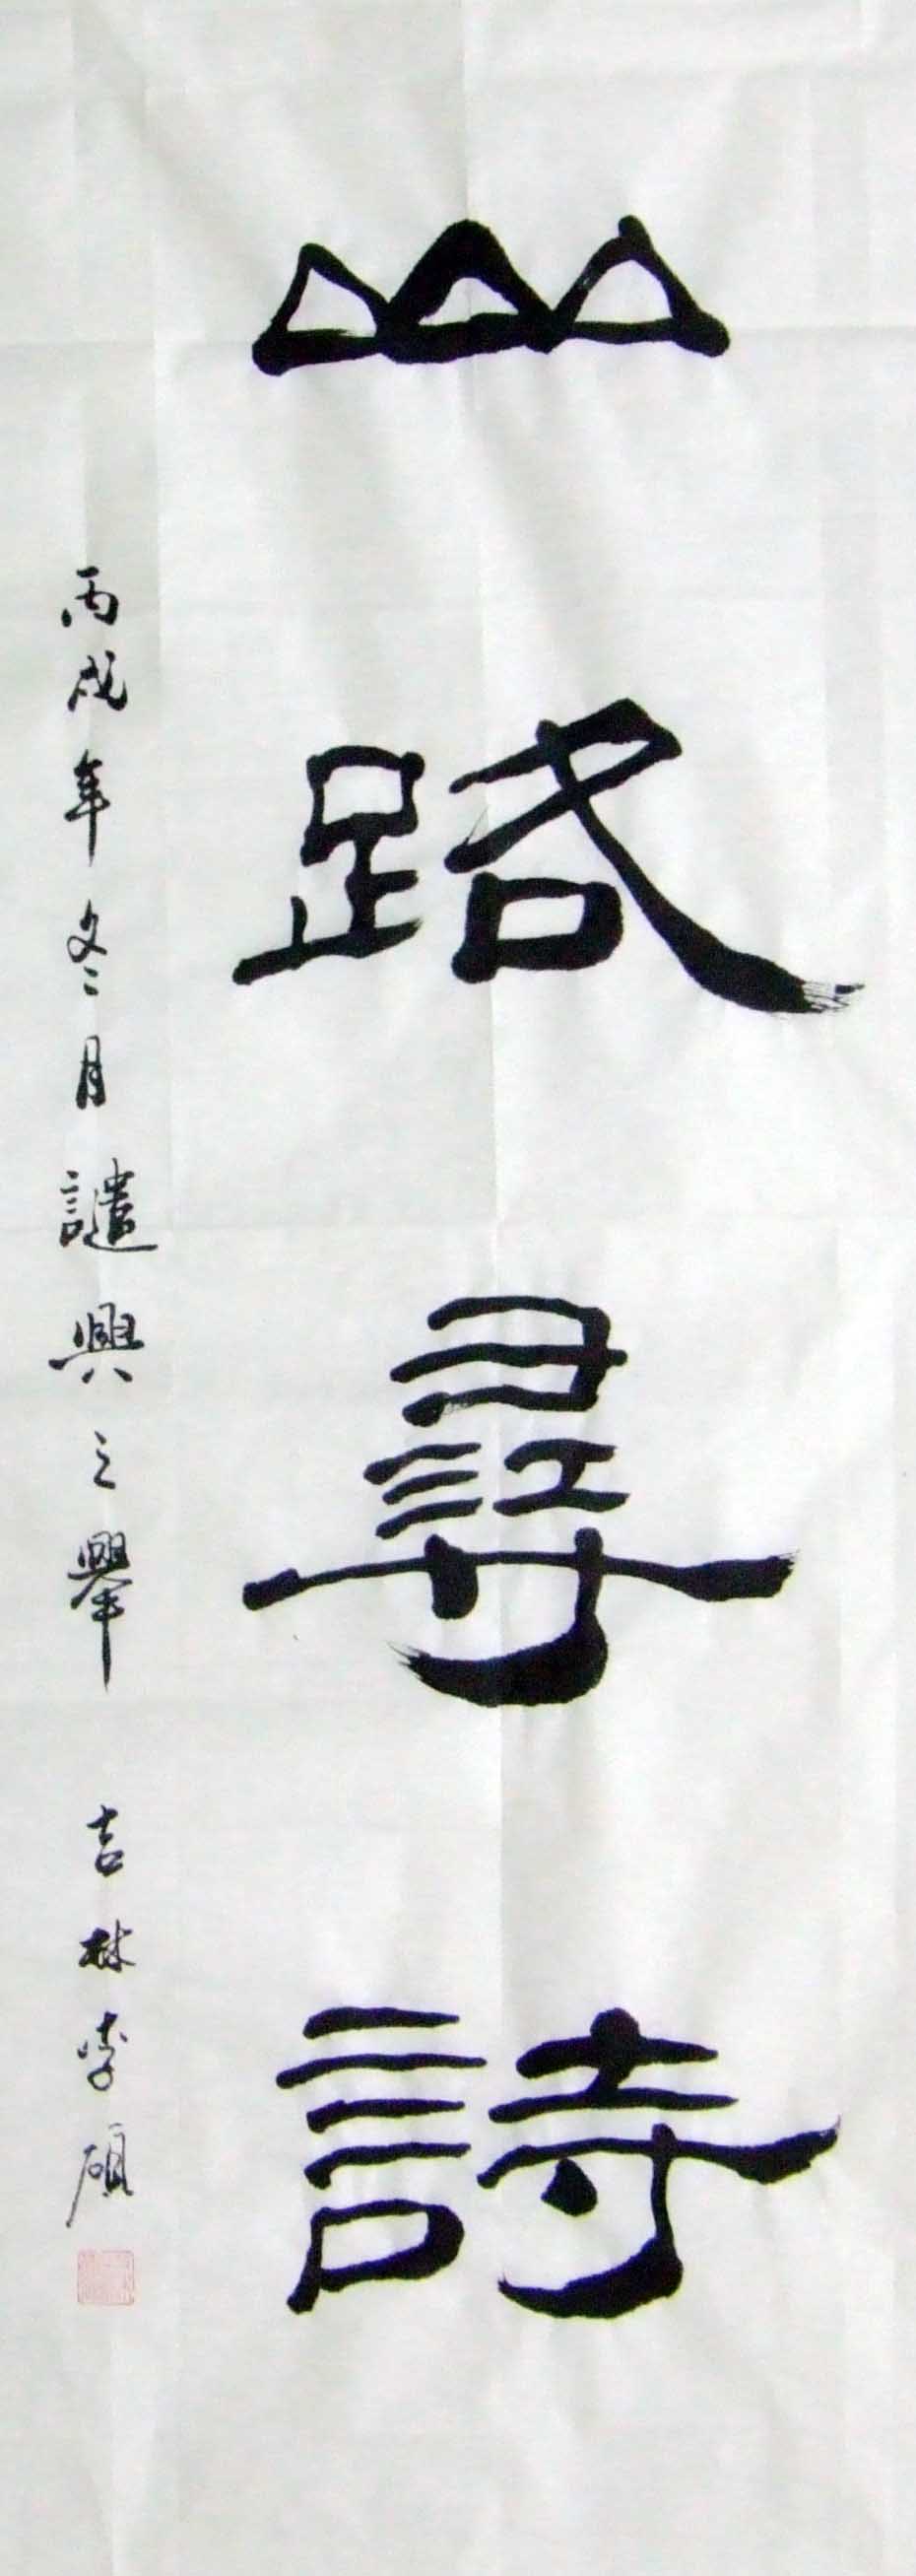 山路尋詩
丙戌年冬月譴興之舉 吉林李碩